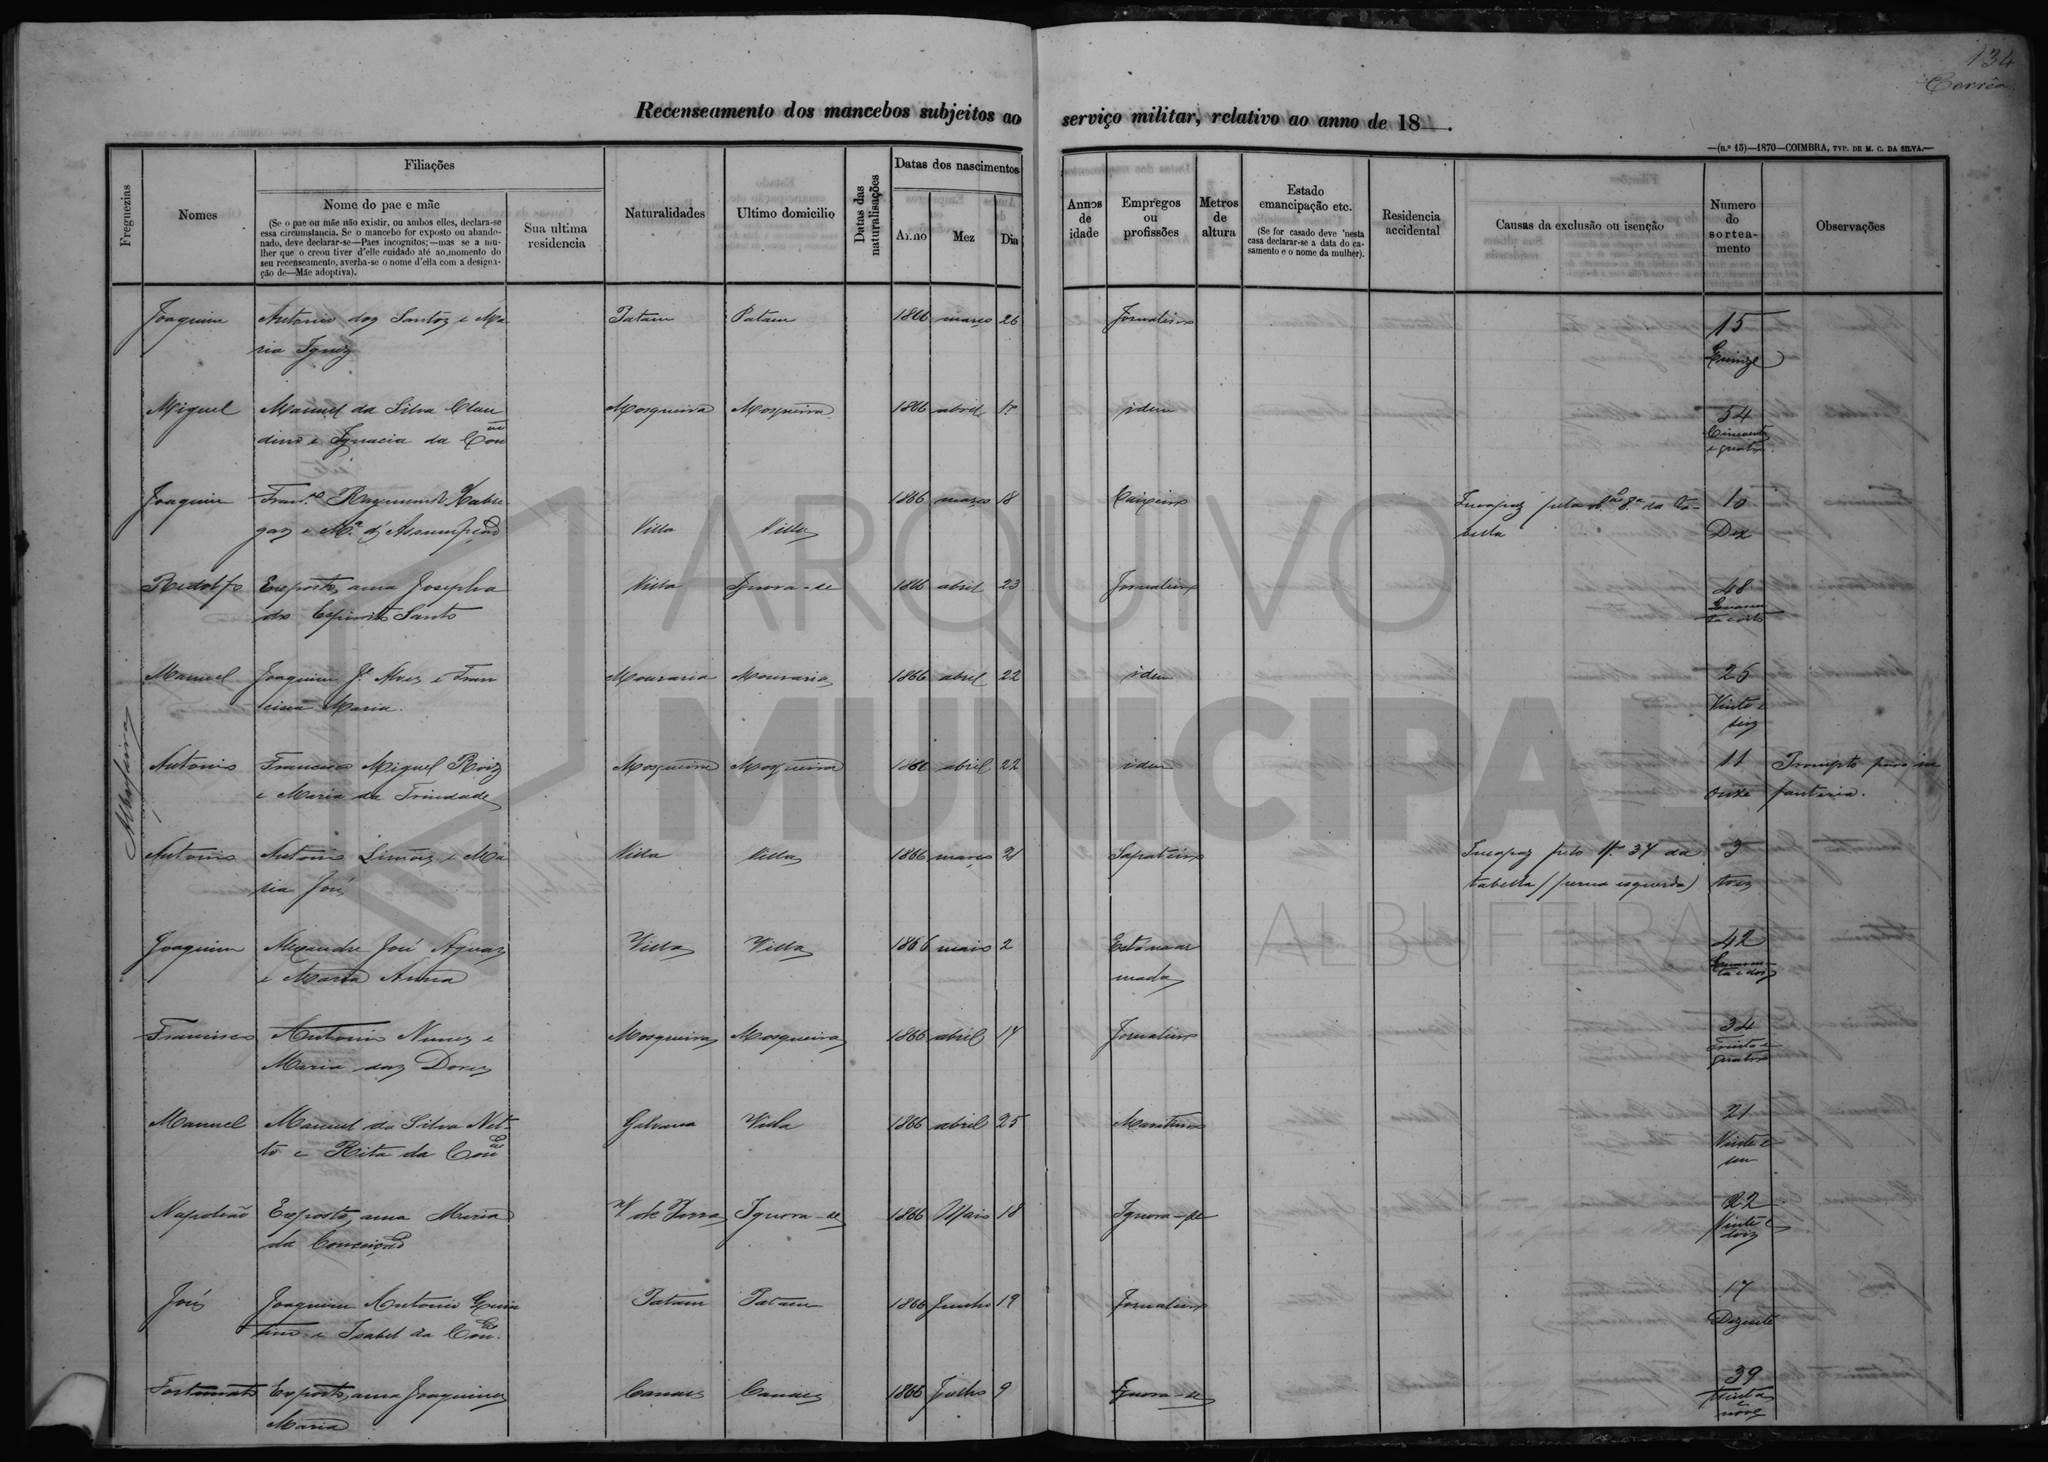 134
Corrêa
Recenseamento dos mancebos subjeitos ao serviço militar, relativo ao anno de 18 .
—(n.º 15)—1870—COIMBRA, TYP. DE M. C. DA SILVA.—
Freguezias
Nomes
Filiações
Nome do pae e mãe
(Se o pae ou mãe não existir, ou ambos elles, declara-se
essa circumstancia. Se o mancebo for exposto ou abando-
nado, deve declarar-se—Paes incognitos;—mas se a mu-
lher que o creou tiver d'elle cuidado até ao momento do
seu recenseamento, averba-se o nome d'ella com a designa-
ção de—Mãe adoptiva).
Sua ultima
residencia
Naturalidades
Ultimo domicilio
Datas das
naturalisações
Datas dos nascimentos
Anno
Mez
Dia
Annos
de
idade
Empregos
ou
profissões
Metros
de
altura
Estado
emancipação etc.
(Se for casado deve 'nesta
casa declarar-se a data do ca-
samento e o nome da mulher).
Residencia
accidental
Causas da exclusão ou isenção
Numero
do
sortea-
mento
Observações
Albufeira
Joaquim Antonio dos Santos e Ma Patam Patam 1866 março 26 Jornaleiro 15
ria Ignez Quinze
Miguel Manuel da Silva Clau Mosqueira Mosqueira 1866 abril 17 idem 54
dino e Ignacia da Con Cincoenta
e quatro
Joaquim Fran.co Raymundo Cabre 1866 março 18 Caixeiro Incapaz pela 8.ª da ta- 10
gas e M.ª d'Assumpção Villa Villa bella Dez
Redolfo Exposto, ama Josepha Villa Ignora-se 1866 abril 23 Jornaleiro 48
do Espirito Santo Quaren
ta e oito
Manuel Joaquim J.e Alves e Fran Mouraria Mouraria 1866 abril 22 idem 26
cisca Maria. Vinte e
seis
Antonio Francisco Miguel Roiz Mosqueira Mosqueira 1866 abril 22 idem 11 Prompto para in
e Maria da Trindade onze fanteria.
Antonio Antonio Simões e Ma Villa Villa 1866 março 21 Sapateiro Incapaz pelo N. 37 da 3
ria José tabella (perna esquerda) tres
Joaquim Alexandre José Aguas Villa Villa 1866 maio 2 Está na ar 42
e Maria Anna mada Quaren-
ta e dois
Francisco Antonio Nunes e Mosqueira Mosqueira 1866 abril 17 Jornaleiro 34
Maria das Dores trinta e
quatro
Manuel Manuel da Silva Net- Galvana Villa 1866 abril 25 Maritimo 21
to e Rita da Con Vinte e
um
Napoleão Exposto, ama Maria Ignora-se 1866 Maio 18 Ignora-se 22
da Conceição Vinte e
dois
José Joaquim Antonio Quin Patam Patam 1866 Junho 19 Jornaleiro 17
tino e Isabel da Con Dezesete
Fortunato Exposto, ama Joaquina Canaes Canaes 1866 Julho 9 Ignora-se 39
Maria trinta
e
nove
ARQUIVO
MUNICIPAL
ALBUFEIRA